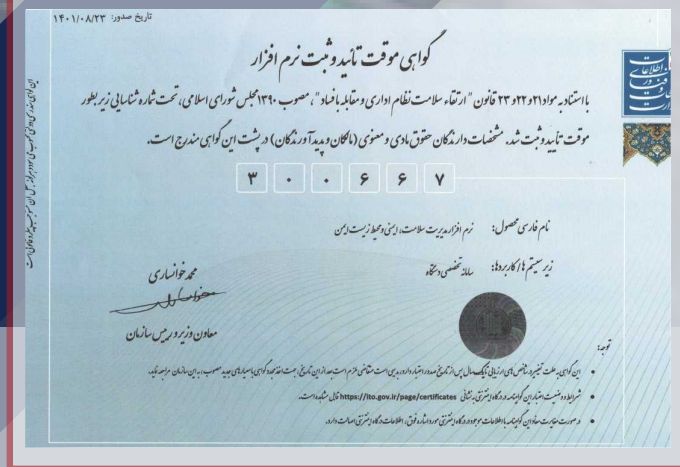 تاریخ صدور: ۱۴۰۱/۰۸/۲۳
گواہی موقت تأیید و ثبت نرم افزار
با استناد به مواد ۲۱ و ۲۲ و ۲۳ قانون "ارتقاء سلامت نظام اداری و مقابله با فساد"، مصوب ۱۳۹۰ مجلس شورای اسلامی، تحت شماره شناسایی زیر بطور
موقت تأیید و ثبت شد. مشخصات دارندگان حقوق مادی و معنوی (مالکان و پدیدآورندگان) در پشت این گواهی مندرج است.
۳ ۰ ۰ ۶ ۶ ۷
نام فارسی محصول: نرم افزار مدیریت سلامت، ایمنی و محیط زیست ایمن
زیر سیستم ها / کاربردها: سامانه تخصصی دستگاه
محمد خوانساری
معاون وزیر و رییس سازمان
توجه:
این گواهی به علت تغییر در شاخص های ارزیابی تا یک سال پس از تاریخ صدور اعتبار دارد، بدیهی است متقاضی ملزم است بعد از این تاریخ، جهت اخذ مجدد گواهی با معیارهای جدید مصوب، به این سازمان مراجعه نماید.
شرایط و وضعیت اعتبار این گواهینامه در درگاه اینترنتی به نشانی https://ito.gov.ir/page/certificates قابل مشاهده است.
در صورت مغایرت مفاد این گواهینامه با اطلاعات موجود در درگاه اینترنتی مورد اشاره فوق، اطلاعات درگاه اینترنتی اصالت دارد.